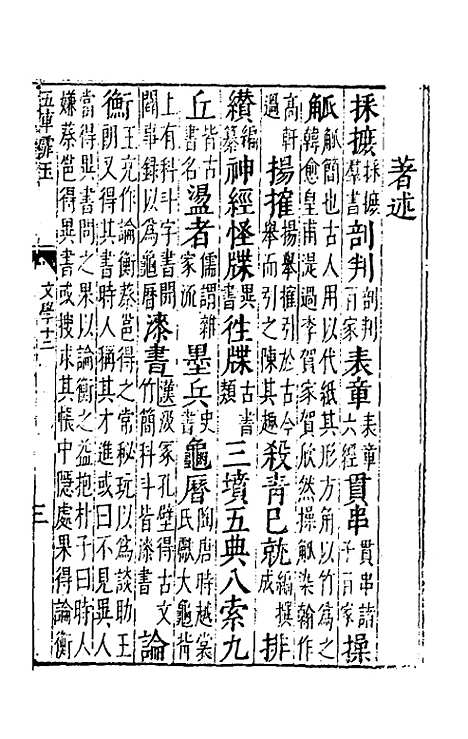 著述
採摭採摭群書剖判剖判百家表章表章六經貫串貫串諸子百家操
觚觚簡也古人用以代紙其形方角以竹為之韓愈皇甫湜過李賀家賀欣然操觚染翰作
高軒過揚搉揚舉搉引於古今舉而引之陳其趣殺青已就編撰成排
纘編纂神經怪牒異書往牒古書類三墳五典八索九
丘皆古書名盪者儒謂雜家流墨兵史書龜曆陶唐時越裳氏獻大龜背
上有科斗字書開闢事錄以為龜曆漆書漢汲冢孔壁得古文竹簡科斗皆漆書論
衡王充作論衡蔡邕得之常秘玩以為談助王朗又得其書時人稱其才進或曰不見異人
當得異書問之果以論衡之益抱朴子曰時人嫌蔡邕得異書或搜求其帳中隱處果得論衡
五車霏玉 文學十二 三